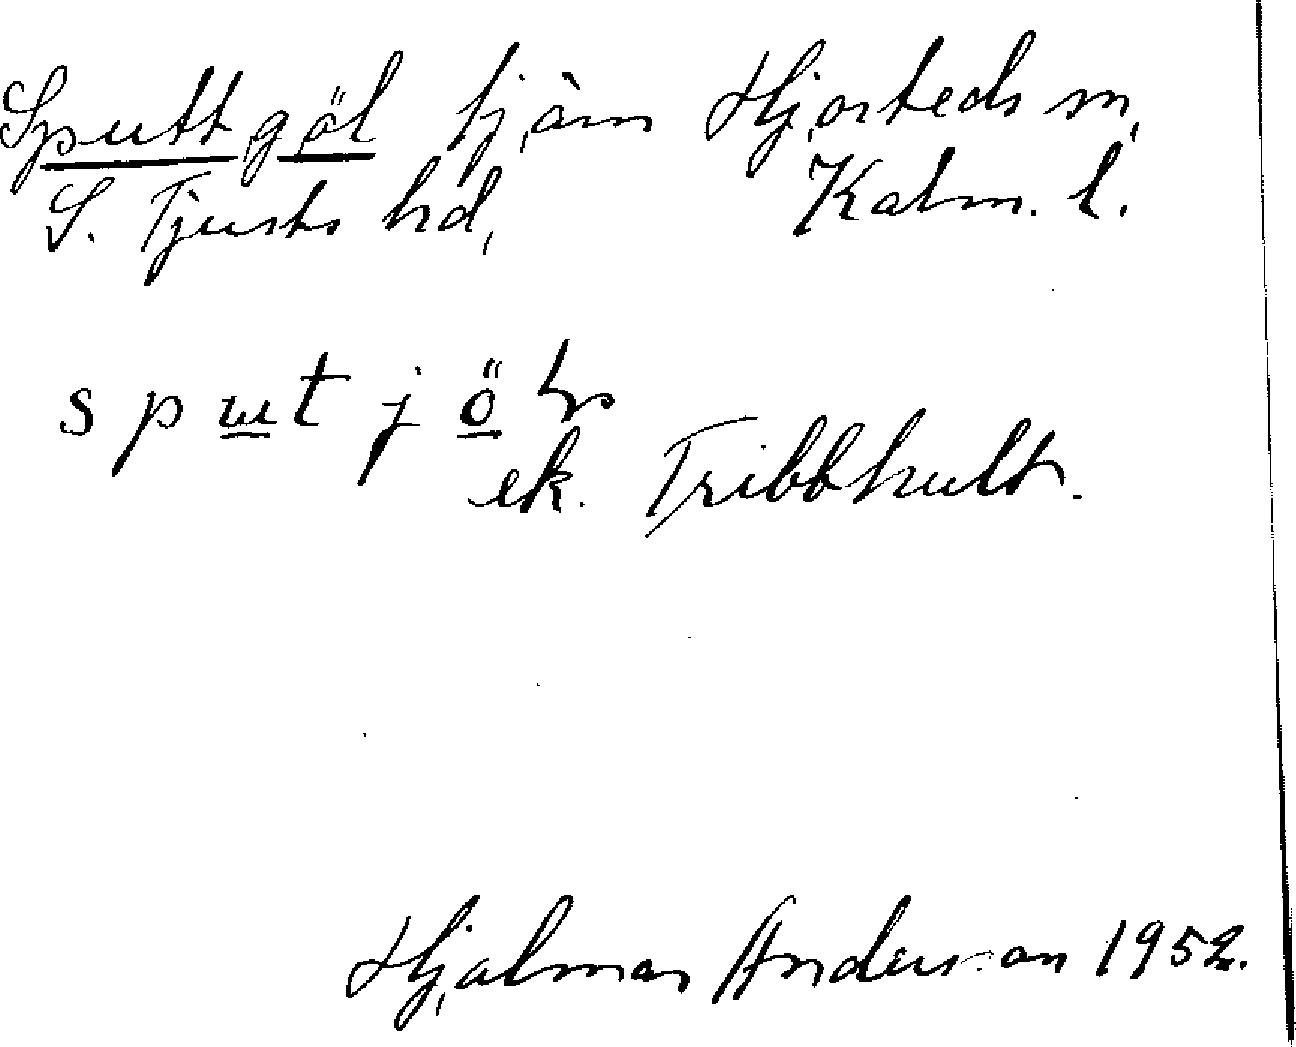 Sputtgöl tjärn Hjorteds sn,
S. Tjusts hd, Kalm. l.
ek. Tribbhult.
Hjalmar Anderson 1952.